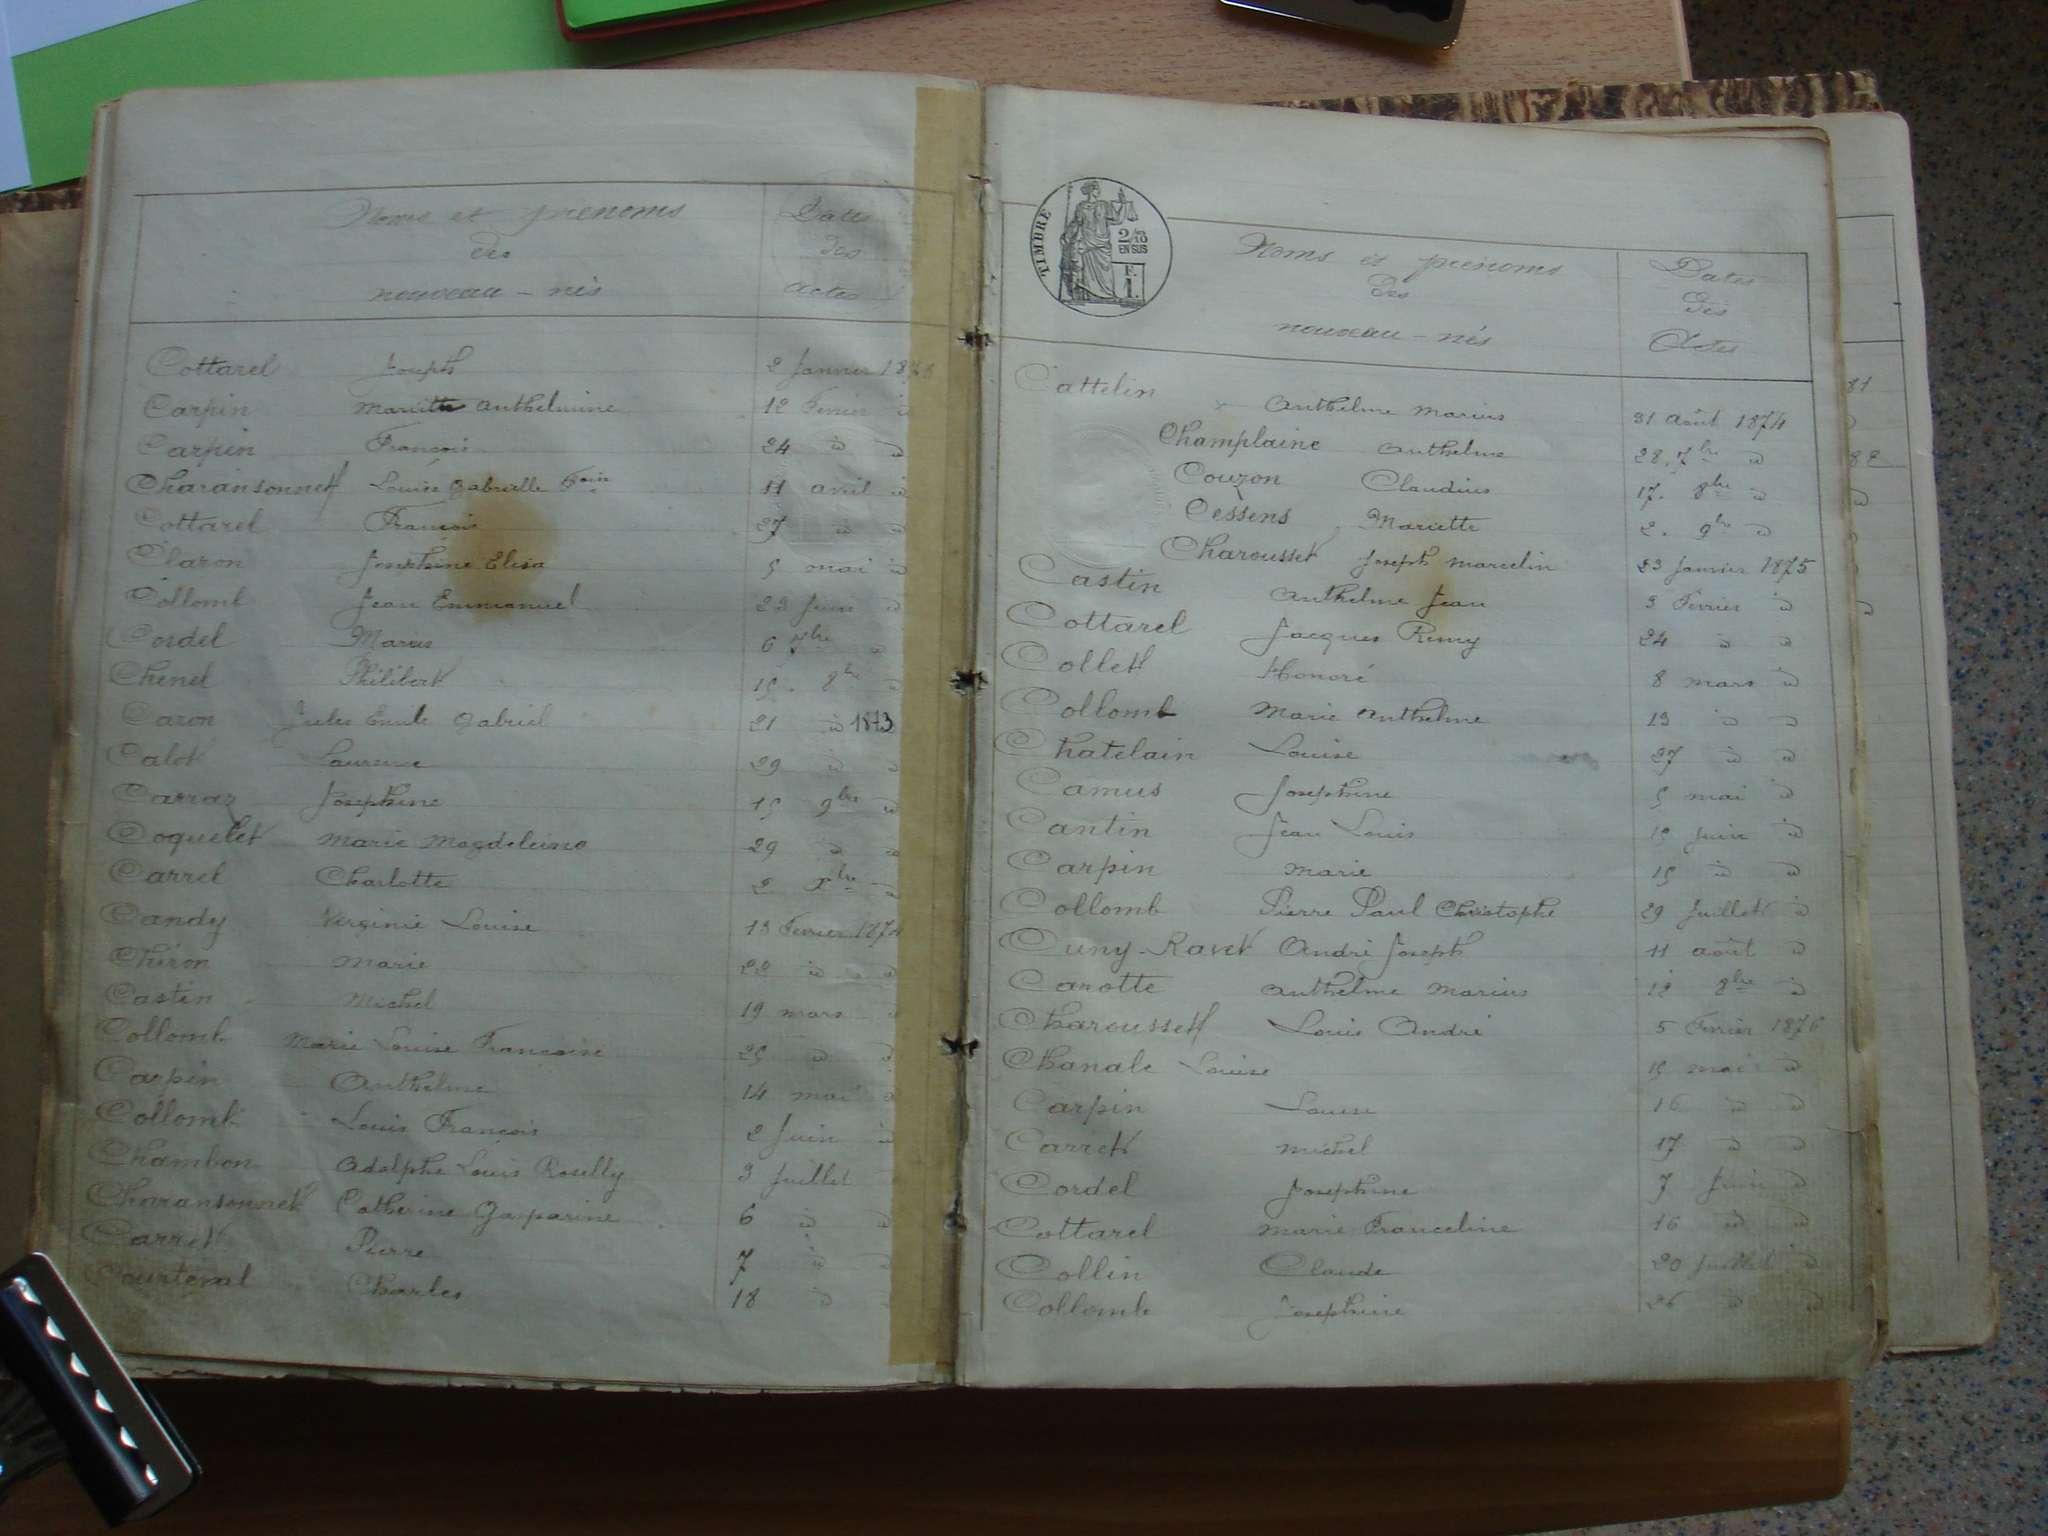 Noms et prénoms
des
nouveau-nés
Dates
des
Actes
Cottarel Joseph 2 Janvier
Carpin Mariette Anthelmine 12 Fevrier id
Carpin François 24 id id
Charansonnet Louise Gabrielle 11 avril id
Cottarel François 27 id id
Claron Josephine Elisa 5 mai id
Collomb Jean Emmanuel 23 Juin id
Cordel Marius 6 7bre id
Chenel Philibert 15. 8bre id
Caron Jules Emile Gabriel 21 id 1873
Calot Laurence 29 id id
Carraz Josephine 15 9bre id
Coquelet Marie Magdeleine 29 id id
Carrel Charlotte 2 Xbre id
Candy Virginie Louise 13 Fevrier 1874
Chiron Marie 22 id id
Castin Michel 19 mars id
Collomb Marie Louise Françoise 25 id id
Carpin Anthelme 14 mai id
Collomb Louis François 2 Juin id
Chambon Adolphe Louis Roselly 3 Juillet
Charansonnet Catherine Gasparine 6 id id
Carret Pierre 7 id id
Courteval Charles 18 id
TIMBRE
2/10
EN SUS
F.
1.
Noms et prénoms
des
nouveau-nés
Dates
des
Actes
Cattelin Anthelme Marius 31 Août 1874
Champlaine Anthelme 28. 7bre id
Couzon Claudius 17. 8bre id
Cessens Mariette 2. 9bre id
Charousset Joseph Marcelin 23 Janvier 1875
Castin Anthelme Jean 3 Fevrier id
Cottarel Jacques Remy 24 id id
Collet Honoré 8 mars id
Collomb Marie Anthelme 13 id id
Chatelain Louise 27 id id
Camus Josephine 5 mai id
Cantin Jean Louis 15 juin id
Carpin Marie 15 id id
Collomb Pierre Paul Christophe 29 Juillet id
Cuny-Ravet André Joseph 11 août id
Carotte Anthelme Marius 12 8bre id
Charousset Louis André 5 Fevrier 1876
Chanale Louise 15 mai id
Carpin Louise 16 id id
Carret Michel 17 id id
Cordel Josephine 7 Juin id
Cottarel Marie Franceline 16 id id
Collin Claude 20 Juillet id
Collomb Josephine 26 id id
81
82